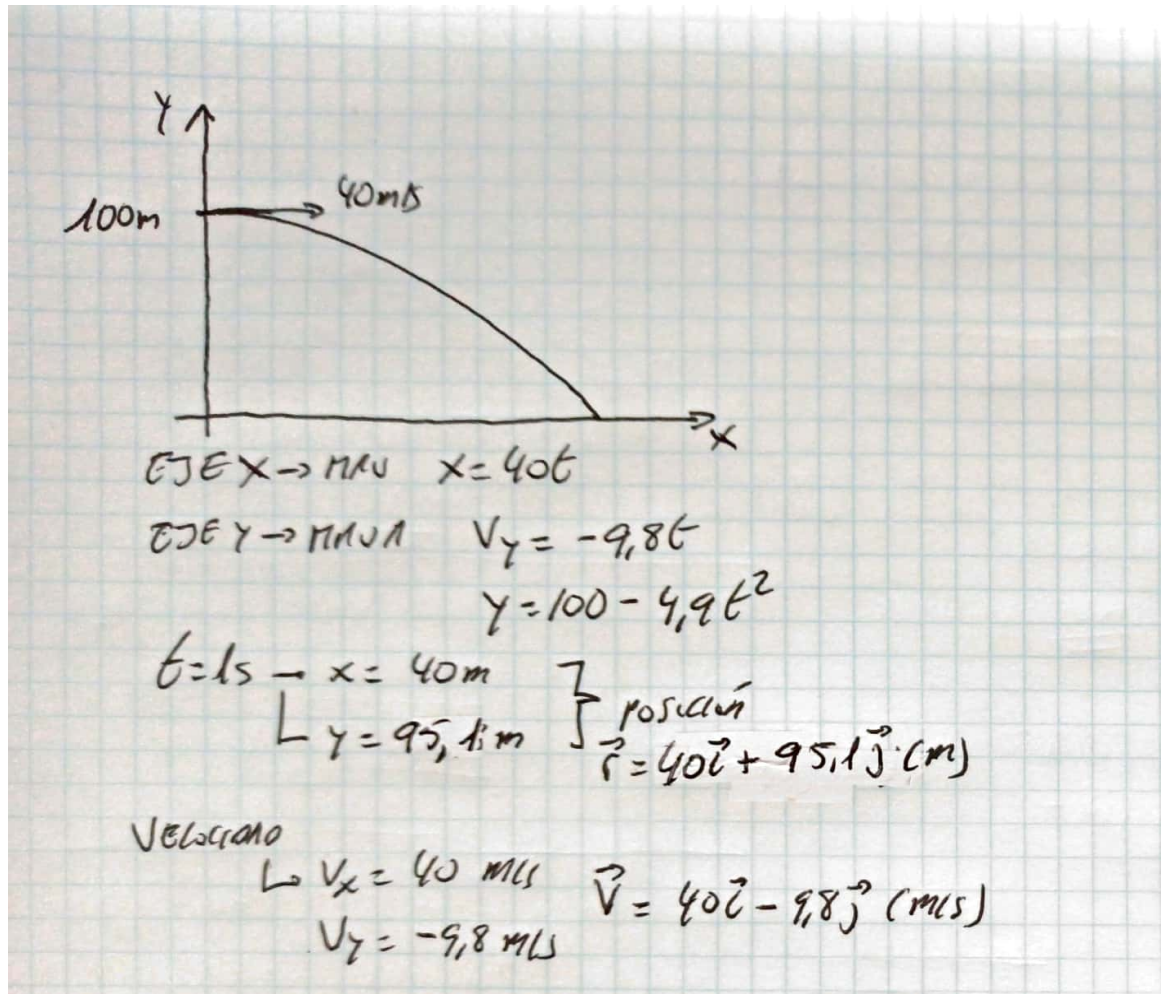 Y
40m/s
100m
X
EJE X → MRU x = 40t
EJE Y → MRUA Vy = -9,8t
y = 100 - 4,9t²
t=1s → x = 40m
y = 95,1m
posición
r⃗ = 40i⃗ + 95,1j⃗ (m)
VELOCIDAD
↳ Vx = 40 m/s V⃗ = 40i⃗ - 9,8j⃗ (m/s)
Vy = -9,8 m/s